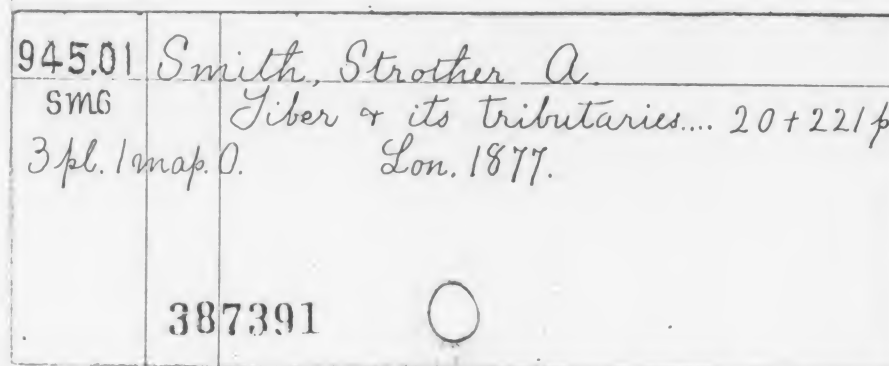 945.01 Smith, Strother A.
SM6 Tiber & its tributaries.... 20+221p
3 pl. 1 map. O. Lon. 1877.
387391